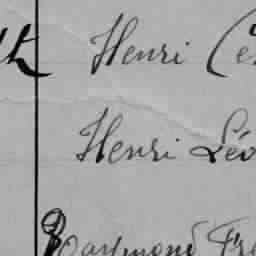 Henri
Henri Lév
Raymond Fr